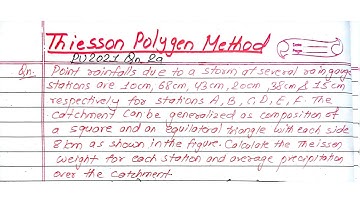 Thiesson Polygen Method
PU2021 Qn 2a
Qn. Point rainfalls due to a storm at several rain gaug
stations are 10cm, 68cm, 43cm, 20cm, 38cm & 15cm
respectively for stations A, B, C, D, E, F. The
catchment can be generalized as composition of
a square and an equilateral triangle with each side
8km as shown in the figure. Calculate the Theissen
weight for each station and average precipitation
over the catchment.